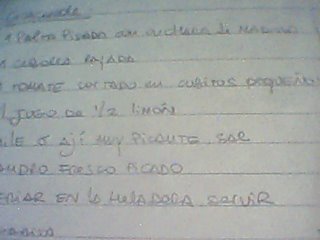 1 PALTA PISADA con cuchara de MADERA
1 CEBOLLA RAJADA
1 TOMATE CORTADO en cubitos pequeño
JUGO DE 1/2 limón
ó Ají MUY PICANTE, SAL
FRESCO PICADO
EN LA HELADORA, SERVIR